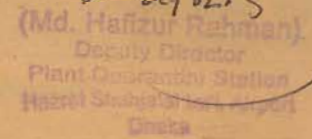 (Md. Hafizur Rahman)
Deputy Director
Plant Quarantine Station
Hazrat Shahjalal Int. Airport
Dhaka